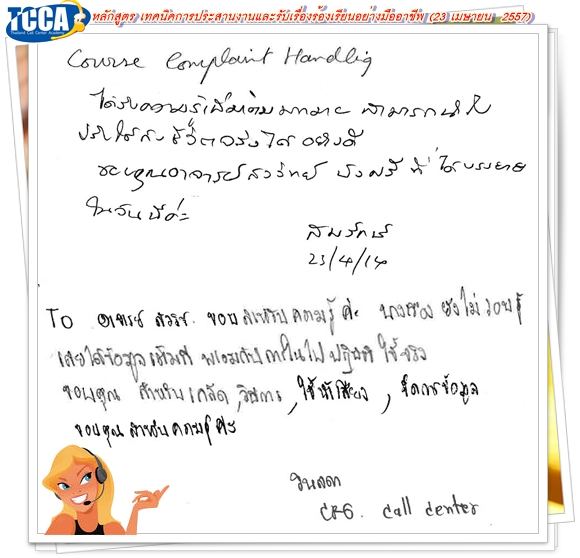 TCCA
Thailand Call Center Academy
หลักสูตร เทคนิคการประสานงานและรับเรื่องร้องเรียนอย่างมืออาชีพ (23 เมษายน 2557)
Course Complaint Handlig
ได้รับความรู้เพิ่มเติมมากมาย สามารถนำไป
ปรับใช้กับชีวิตจริงได้อย่างดี
ขอบคุณอาจารย์ ที่ได้บรรยาย
ในวันนี้ค่ะ
สมรักษ์
23/4/14
To อาจารย์ ขอบ สำหรับความรู้ค่ะ บางเรื่อง ยังไม่รอบรู้
เลยได้ข้อมูลเต็มที่ พร้อมกับ ไปปฏิบัติ ใช้จริง
ขอบคุณ สำหรับเกล็ด, วิธีการ, ใช้น้ำเสียง, จัดการข้อมูล
ขอบคุณสำหรับความรู้ค่ะ
CRG. Call center